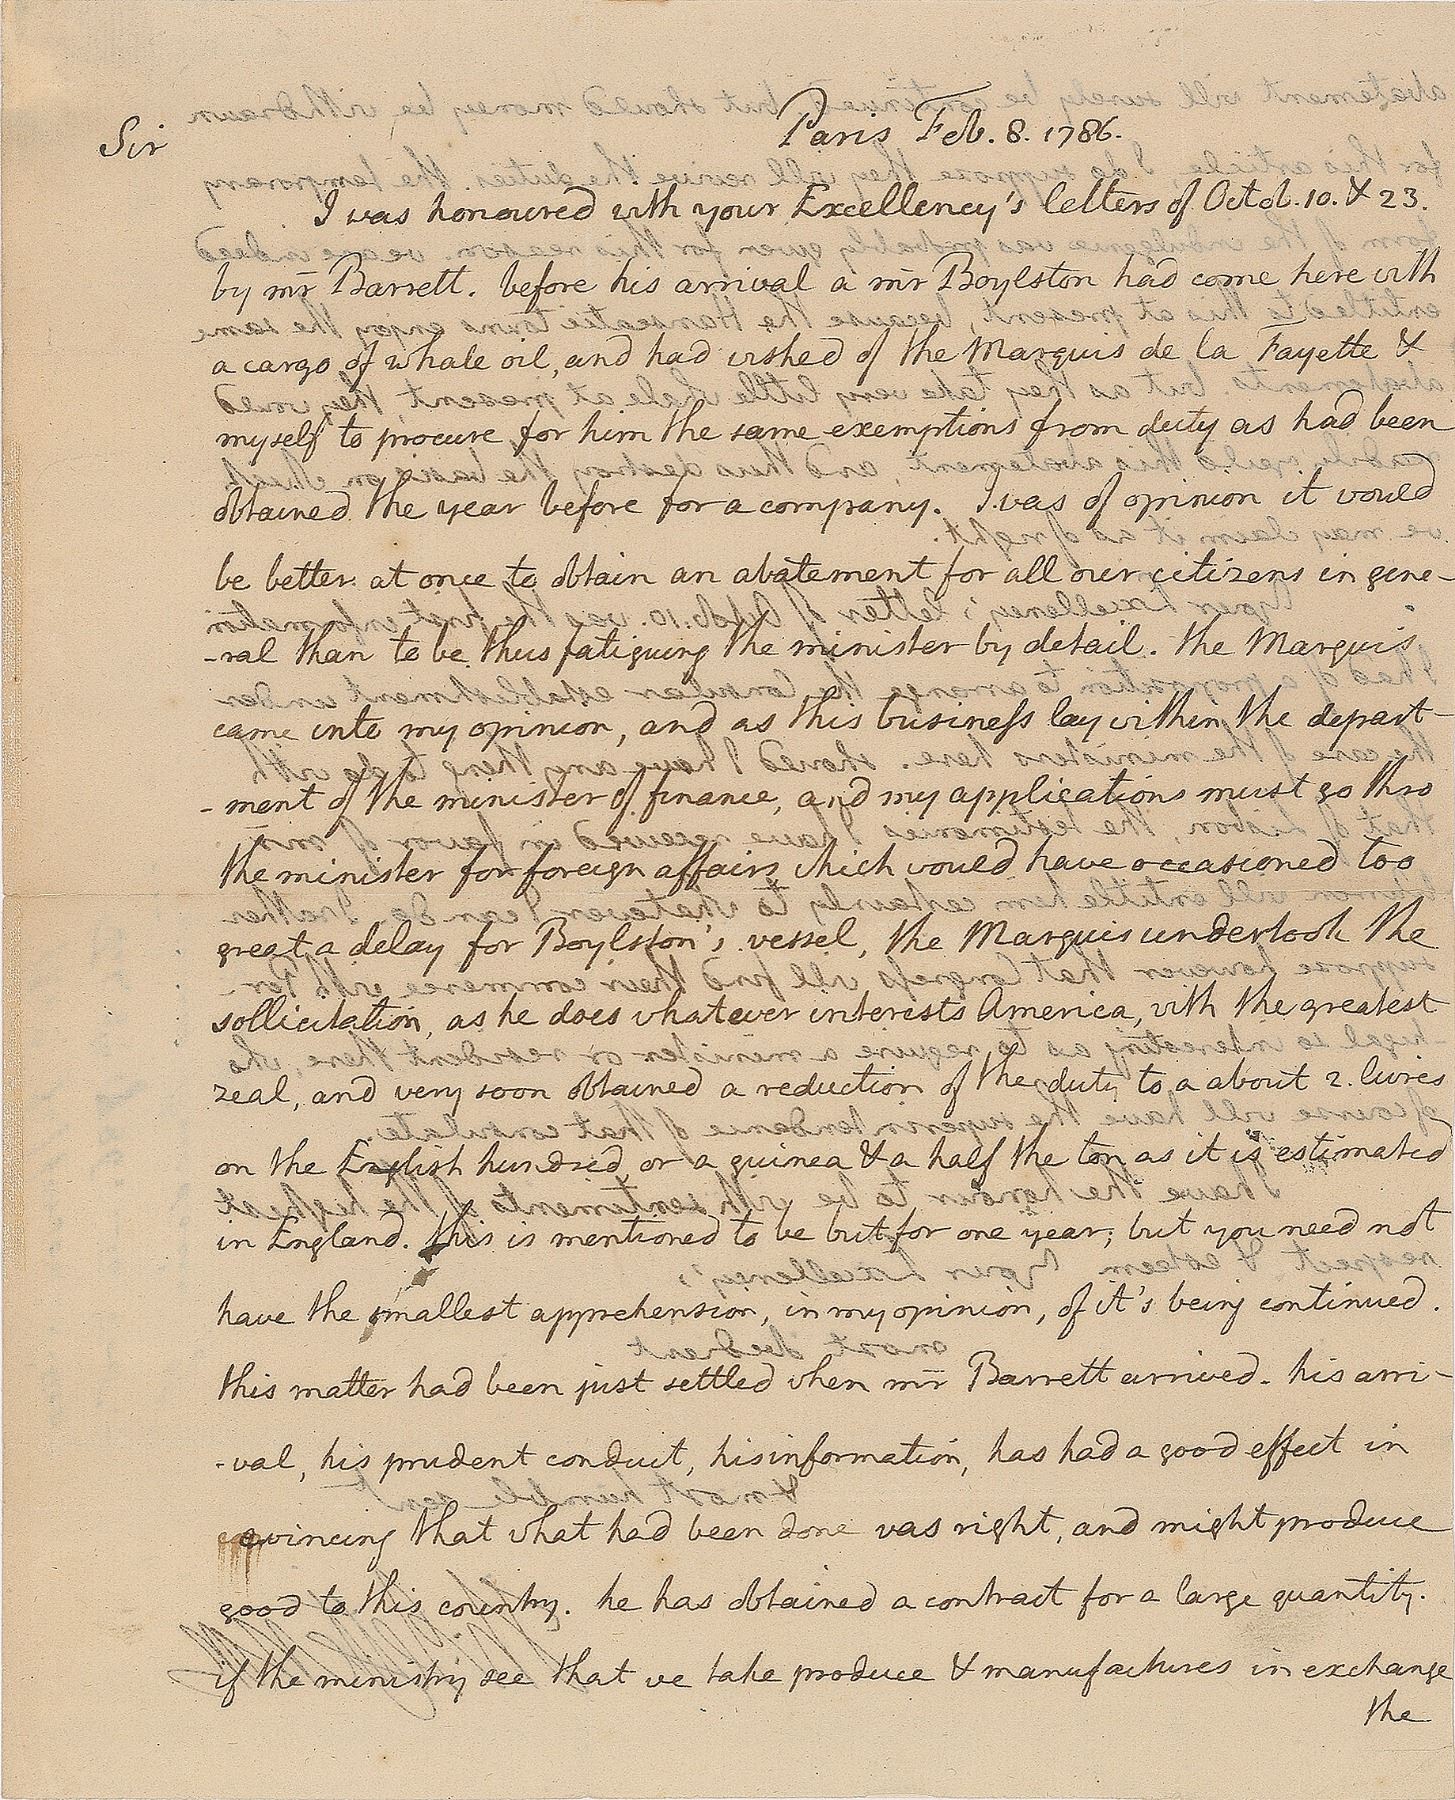 Paris Feb. 8. 1786.
Sir
I was honoured with your Excellency's letters of Octob. 10. & 23.
by mr̃ Barrett. before his arrival a mr̃ Boylston had come here with
a cargo of whale oil, and had wished of the Marquis de la Fayette &
myself to procure for him the same exemptions from duty as had been
obtained the year before for a company. I was of opinion it would
be better at once to obtain an abatement for all our citizens in gene-
-ral than to be thus fatiguing the minister by detail. the Marquis
came into my opinion, and as this business lay within the depart-
-ment of the minister of finance, and my applications must go thro
the minister for foreign affairs which would have occasioned too
great a delay for Boylston's vessel, the Marquis undertook the
sollicitation, as he does whatever interests America, with the greatest
zeal, and very soon obtained a reduction of the duty to a about 2. livres
on the English hundred, or a guinea & a half the ton as it is estimated
in England. this is mentioned to be but for one year; but you need not
have the smallest apprehension, in my opinion, of it's being continued.
this matter had been just settled when mr̃ Barrett arrived. his arri-
-val, his prudent conduct, his information, has had a good effect in
evincing that what had been done was right, and might produce
good to this country. he has obtained a contract for a large quantity.
if the ministry see that we take produce & manufactures in exchange
the